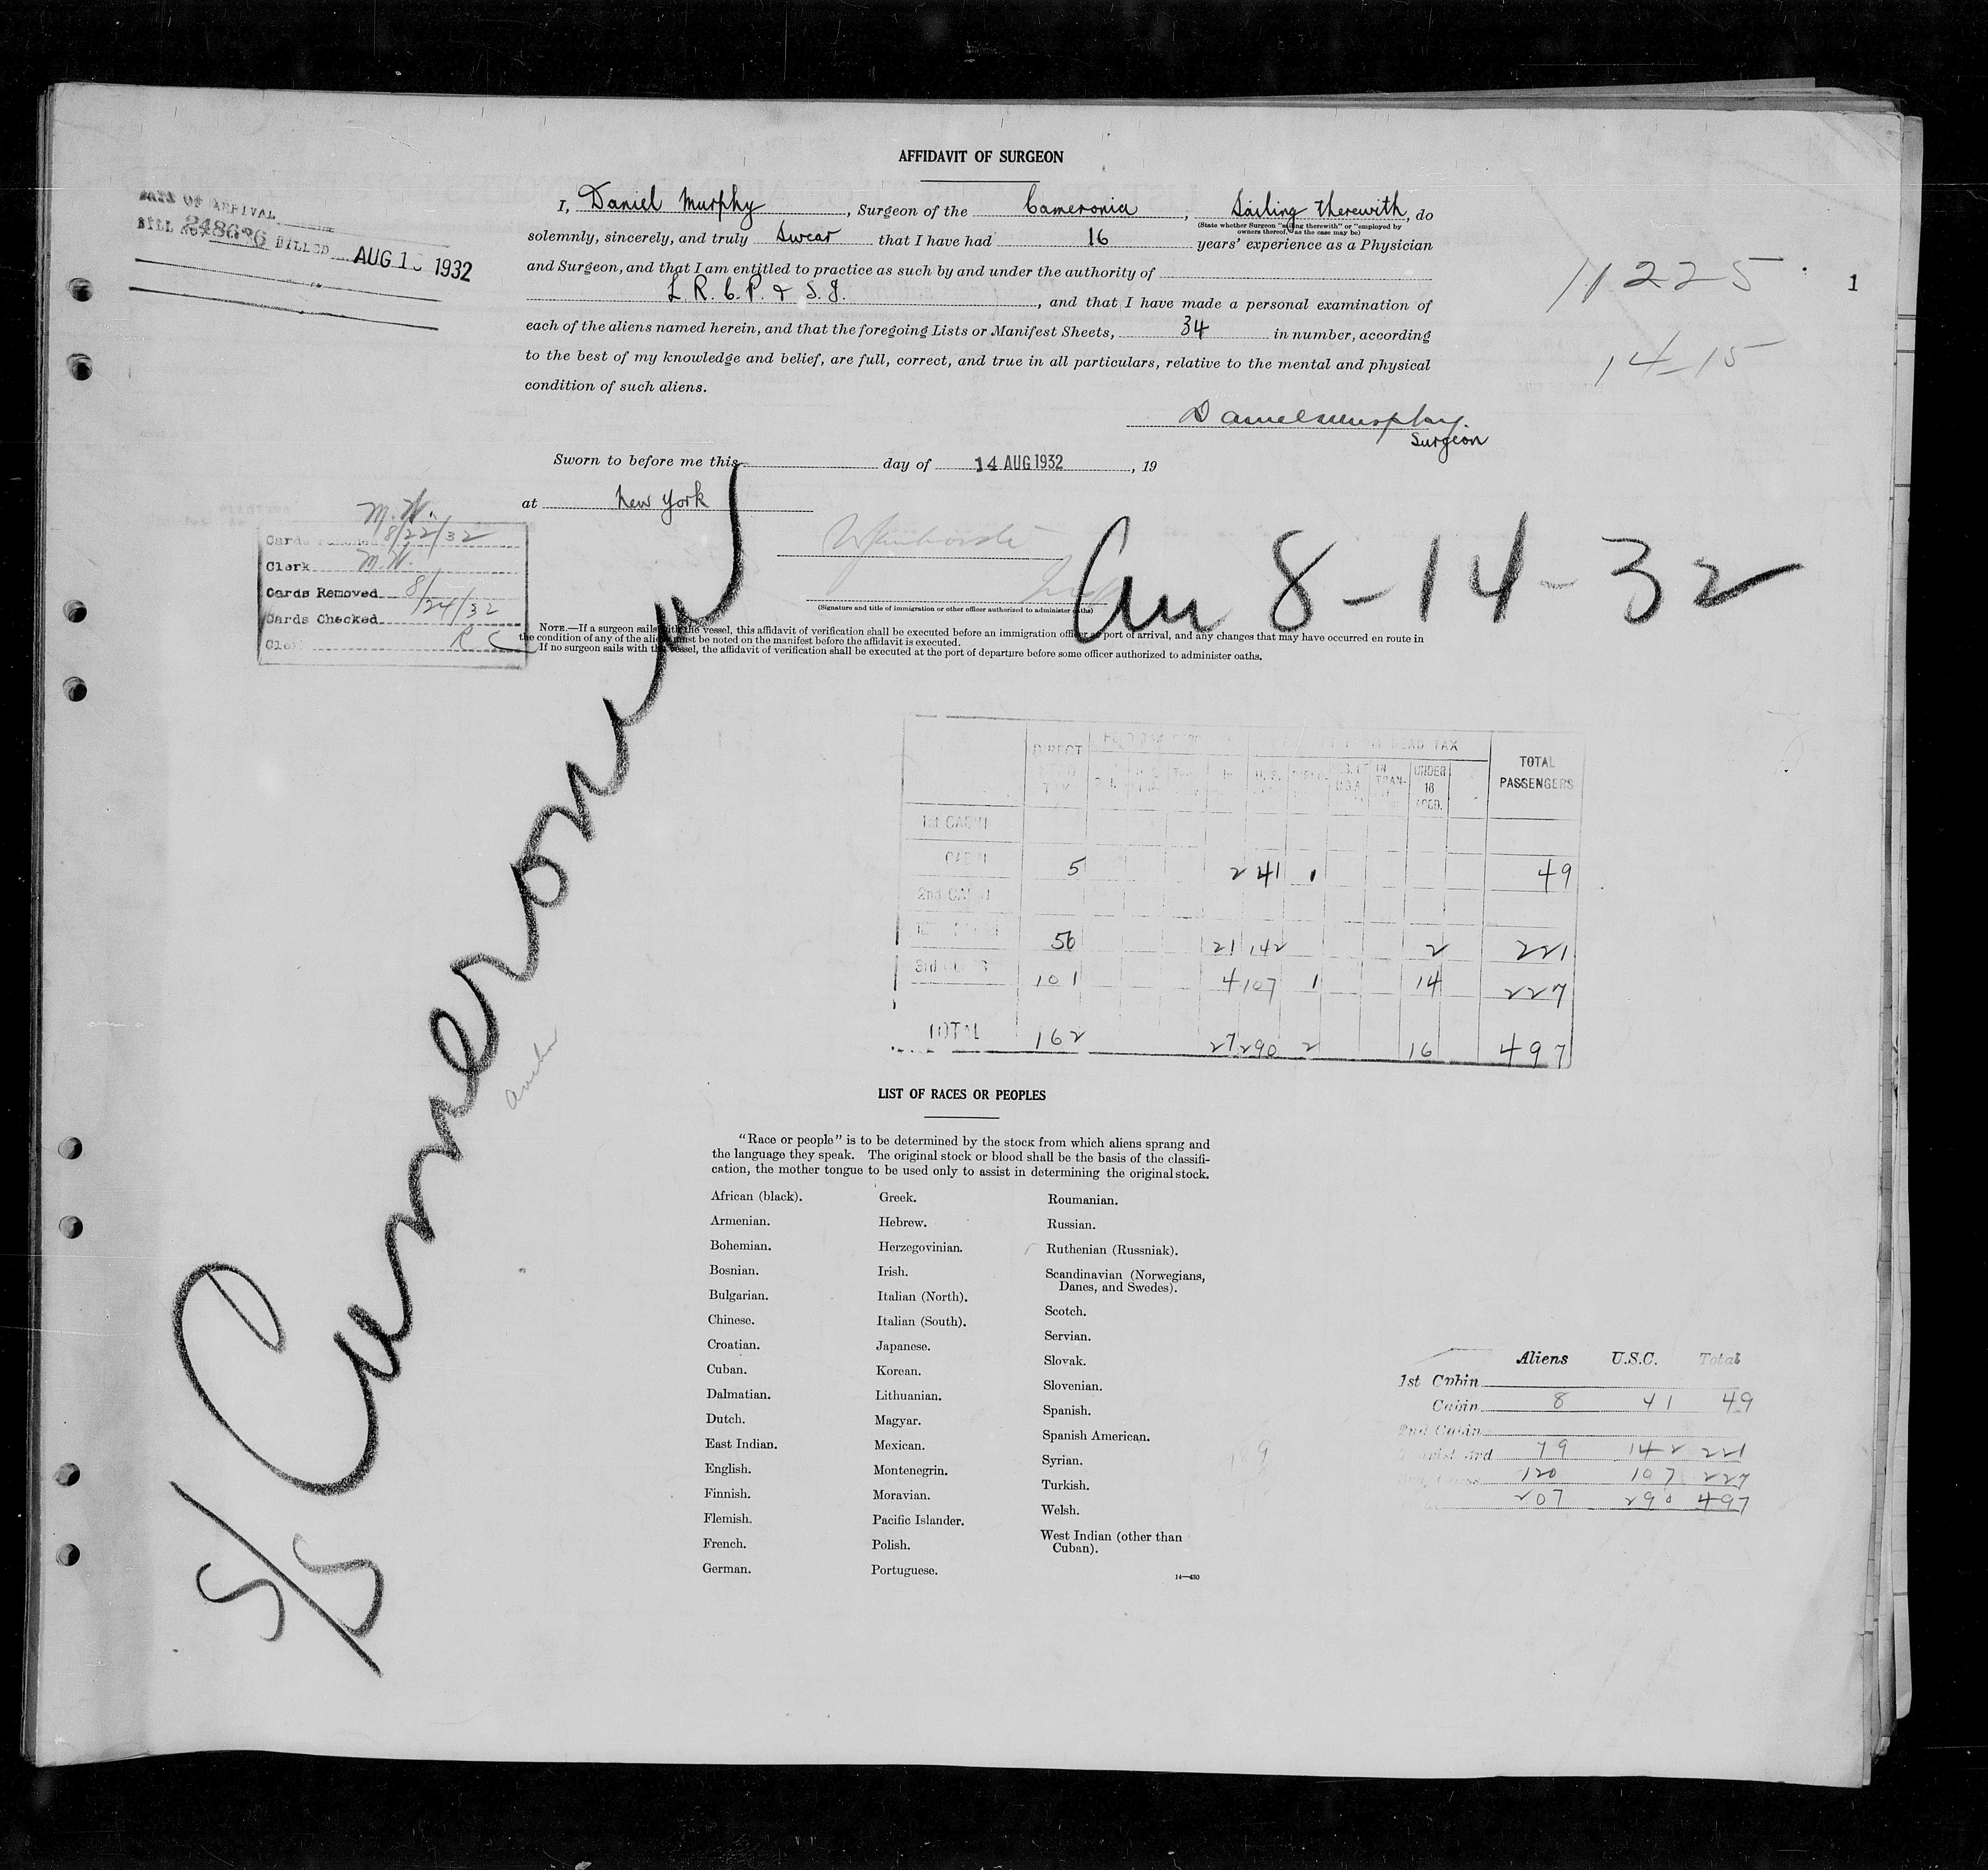 AFFIDAVIT OF SURGEON
I, Daniel Murphy, Surgeon of the Cameronia, Sailing therewith, do
(State whether Surgeon "sailing therewith" or "employed by
owners thereof," as the case may be)
solemnly, sincerely, and truly Swear that I have had 16 years' experience as a Physician
and Surgeon, and that I am entitled to practice as such by and under the authority of
L. R. C. P. & S. I., and that I have made a personal examination of
each of the aliens named herein, and that the foregoing Lists or Manifest Sheets, 34 in number, according
to the best of my knowledge and belief, are full, correct, and true in all particulars, relative to the mental and physical
condition of such aliens.
DATE OF ARRIVAL
BILL No. 248636 BILLED AUG 1 1932
11225
1
14-15
Daniel Murphy.
Surgeon
Sworn to before me this day of 14 AUG 1932, 19
at New York
(Signature and title of immigration or other officer authorized to administer oaths)
M. W.
Cards 8/22/32
Clerk M. W.
Cards Removed 8/24/32
Cards Checked
Clerk R C
An 8-14-32
NOTE.—If a surgeon sails with the vessel, this affidavit of verification shall be executed before an immigration officer at port of arrival, and any changes that may have occurred en route in
the condition of any of the aliens must be noted on the manifest before the affidavit is executed.
If no surgeon sails with the vessel, the affidavit of verification shall be executed at the port of departure before some officer authorized to administer oaths.
S/S Cameronia
Anchor
DIRECT HEAD TAX
HEAD TAX
U.S.
U.S.A.
IN TRAN-
UNDER 16 ACCD.
TOTAL PASSENGERS
1st CABIN
CABIN 5 2 41 1 49
2nd CABIN
56 21 142 2 221
3rd CLASS 101 4 107 1 14 227
TOTAL 162 27 290 2 16 497
LIST OF RACES OR PEOPLES
"Race or people" is to be determined by the stock from which aliens sprang and
the language they speak. The original stock or blood shall be the basis of the classifi-
cation, the mother tongue to be used only to assist in determining the original stock.
African (black).
Armenian.
Bohemian.
Bosnian.
Bulgarian.
Chinese.
Croatian.
Cuban.
Dalmatian.
Dutch.
East Indian.
English.
Finnish.
Flemish.
French.
German.
Greek.
Hebrew.
Herzegovinian.
Irish.
Italian (North).
Italian (South).
Japanese.
Korean.
Lithuanian.
Magyar.
Mexican.
Montenegrin.
Moravian.
Pacific Islander.
Polish.
Portuguese.
Roumanian.
Russian.
Ruthenian (Russniak).
Scandinavian (Norwegians,
Danes, and Swedes).
Scotch.
Servian.
Slovak.
Slovenian.
Spanish.
Spanish American.
Syrian.
Turkish.
Welsh.
West Indian (other than
Cuban).
14—430
Aliens U.S.C. Total
1st Cabin
Cabin 8 41 49
2nd Cabin
Tourist 3rd 79 142 221
120 107 227
207 290 497